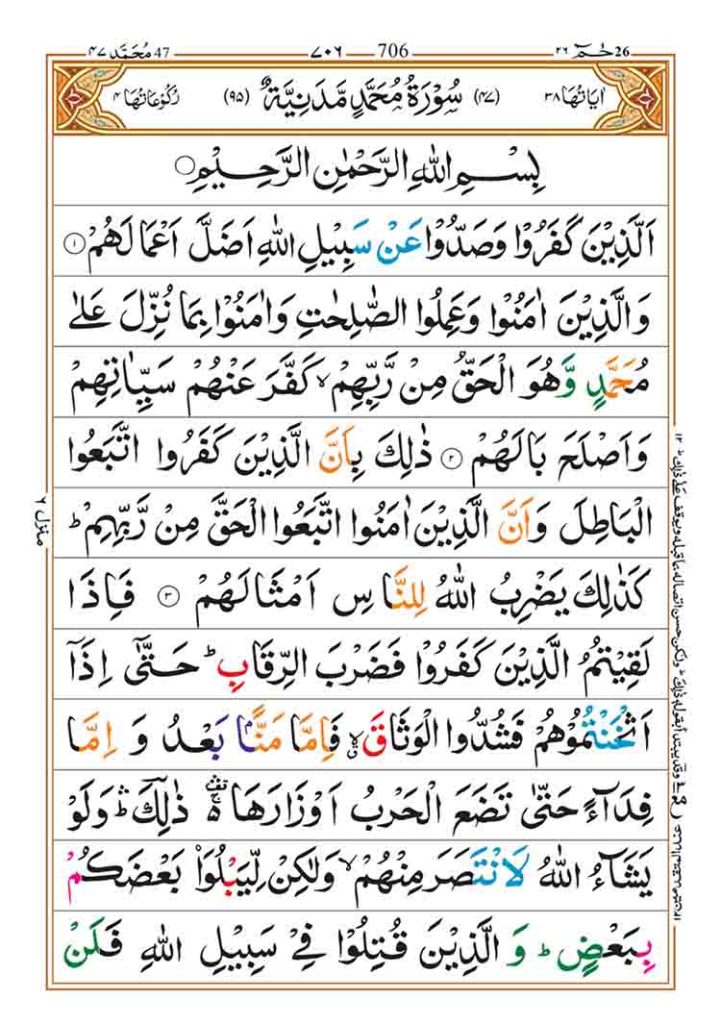 محمد ٤٧ 47 ٧٠٦ 706 حٰمٓ ٢٦ 26
اٰیَاتُهَا ٣٨ (٤٧) سُوْرَةُ مُحَمَّدٍ مَّدَنِیَّةٌ (٩٥) رُكُوْعَاتُهَا ٤
بِسْمِ اللهِ الرَّحْمٰنِ الرَّحِیْمِ
اَلَّذِیْنَ كَفَرُوْا وَصَدُّوْا عَنْ سَبِیْلِ اللهِ اَضَلَّ اَعْمَالَهُمْ ١
وَالَّذِیْنَ اٰمَنُوْا وَعَمِلُوا الصّٰلِحٰتِ وَاٰمَنُوْا بِمَا نُزِّلَ عَلٰى
مُحَمَّدٍ وَّهُوَ الْحَقُّ مِنْ رَّبِّهِمْ ۙ كَفَّرَ عَنْهُمْ سَیِّاٰتِهِمْ
وَاَصْلَحَ بَالَهُمْ ٢ ذٰلِكَ بِاَنَّ الَّذِیْنَ كَفَرُوا اتَّبَعُوا
الْبَاطِلَ وَاَنَّ الَّذِیْنَ اٰمَنُوا اتَّبَعُوا الْحَقَّ مِنْ رَّبِّهِمْ ؕ
كَذٰلِكَ یَضْرِبُ اللهُ لِلنَّاسِ اَمْثَالَهُمْ ٣ فَاِذَا
لَقِیْتُمُ الَّذِیْنَ كَفَرُوْا فَضَرْبَ الرِّقَابِ ؕ حَتّٰۤى اِذَاۤ
اَثْخَنْتُمُوْهُمْ فَشُدُّوا الْوَثَاقَ ۙ فَاِمَّا مَنًّۢا بَعْدُ وَ اِمَّا
فِدَآءً حَتّٰى تَضَعَ الْحَرْبُ اَوْزَارَهَا ذٰلِكَ ؕ وَلَوْ
یَشَآءُ اللهُ لَانْتَصَرَ مِنْهُمْ ۙ وَلٰكِنْ لِّیَبْلُوَا۟ بَعْضَكُمْ
بِبَعْضٍ ؕ وَ الَّذِیْنَ قُتِلُوْا فِیْ سَبِیْلِ اللهِ فَلَنْ
منزل ٦